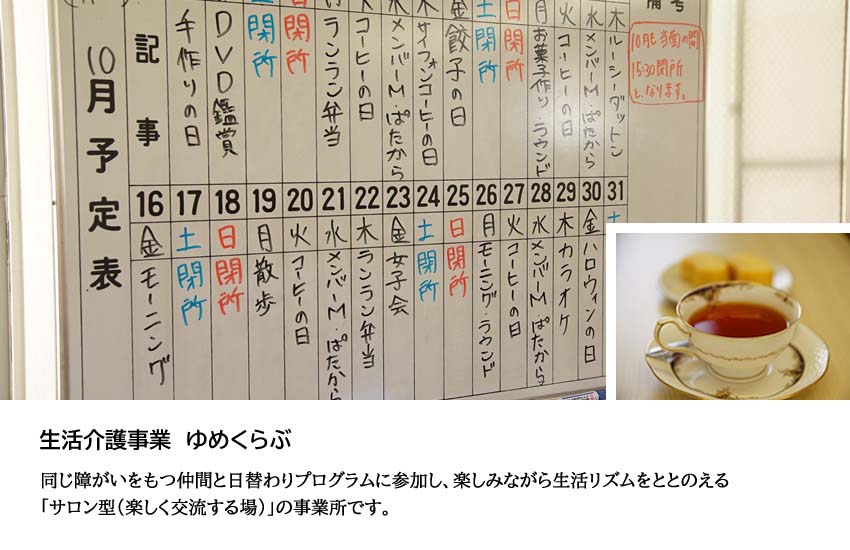 10月予定表
記事
手作りの日
DVD鑑賞
閉所
閉所
ランラン弁当
コーヒーの日
メンバーM・ぱたから
サイフォンコーヒーの日
金 餃子の日
土 閉所
日 閉所
月 お菓子作り・ラウンド
火 コーヒーの日
水 メンバーM・ぱたから
木 ルーシーダットン
備考
10月も当面の間
15:30閉所
となります。
16 金 モーニング
17 土 閉所
18 日 閉所
19 月 散歩
20 火 コーヒーの日
21 水 メンバーM・ぱたから
22 木 ランラン弁当
23 金 女子会
24 土 閉所
25 日 閉所
26 月 モーニング・ラウンド
27 火 コーヒーの日
28 水 メンバーM・ぱたから
29 木 カラオケ
30 金 ハロウィンの日
31 土
生活介護事業 ゆめくらぶ
同じ障がいをもつ仲間と日替わりプログラムに参加し、楽しみながら生活リズムをととのえる
「サロン型（楽しく交流する場）」の事業所です。